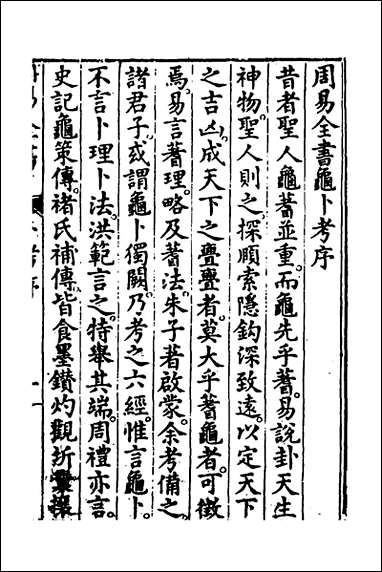 周易全書龜卜考序
昔者聖人龜蓍並重。而龜先乎蓍。易說卦天生
神物。聖人則之。探賾索隱。鈎深致遠。以定天下
之吉凶。成天下之亹亹者。莫大乎蓍龜者。可徵
焉。易言蓍理。略及蓍法。朱子著啟蒙。余考備之。
諸君子。或謂龜卜獨闕。乃考之六經。惟言龜卜。
不言卜理卜法。洪範言之。特舉其端。周禮亦言。
史記龜策傳。褚氏補傳。皆食墨鑚灼觀坼